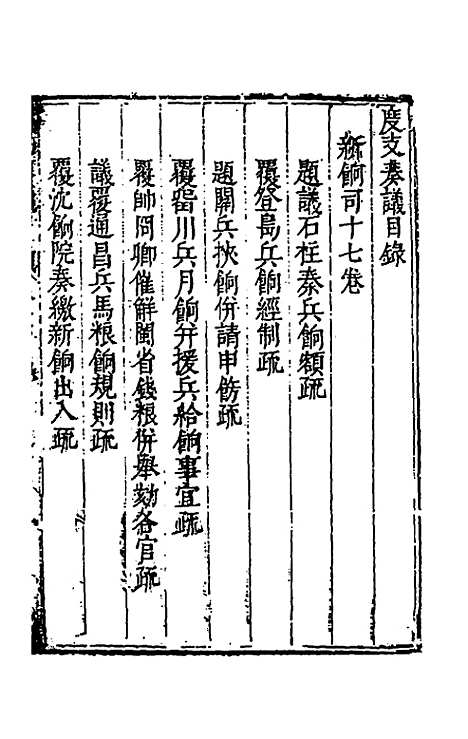 度支奏議目錄
新餉司十七卷
題議石柱秦兵餉額疏
覆登島兵餉經制疏
題關兵挾餉併請申飭疏
覆留川兵月餉并援兵給餉事宜疏
覆帥問卿催解閩省錢粮併舉劾各官疏
議覆通昌兵馬粮餉規則疏
覆沈餉院奏繳新餉出入疏